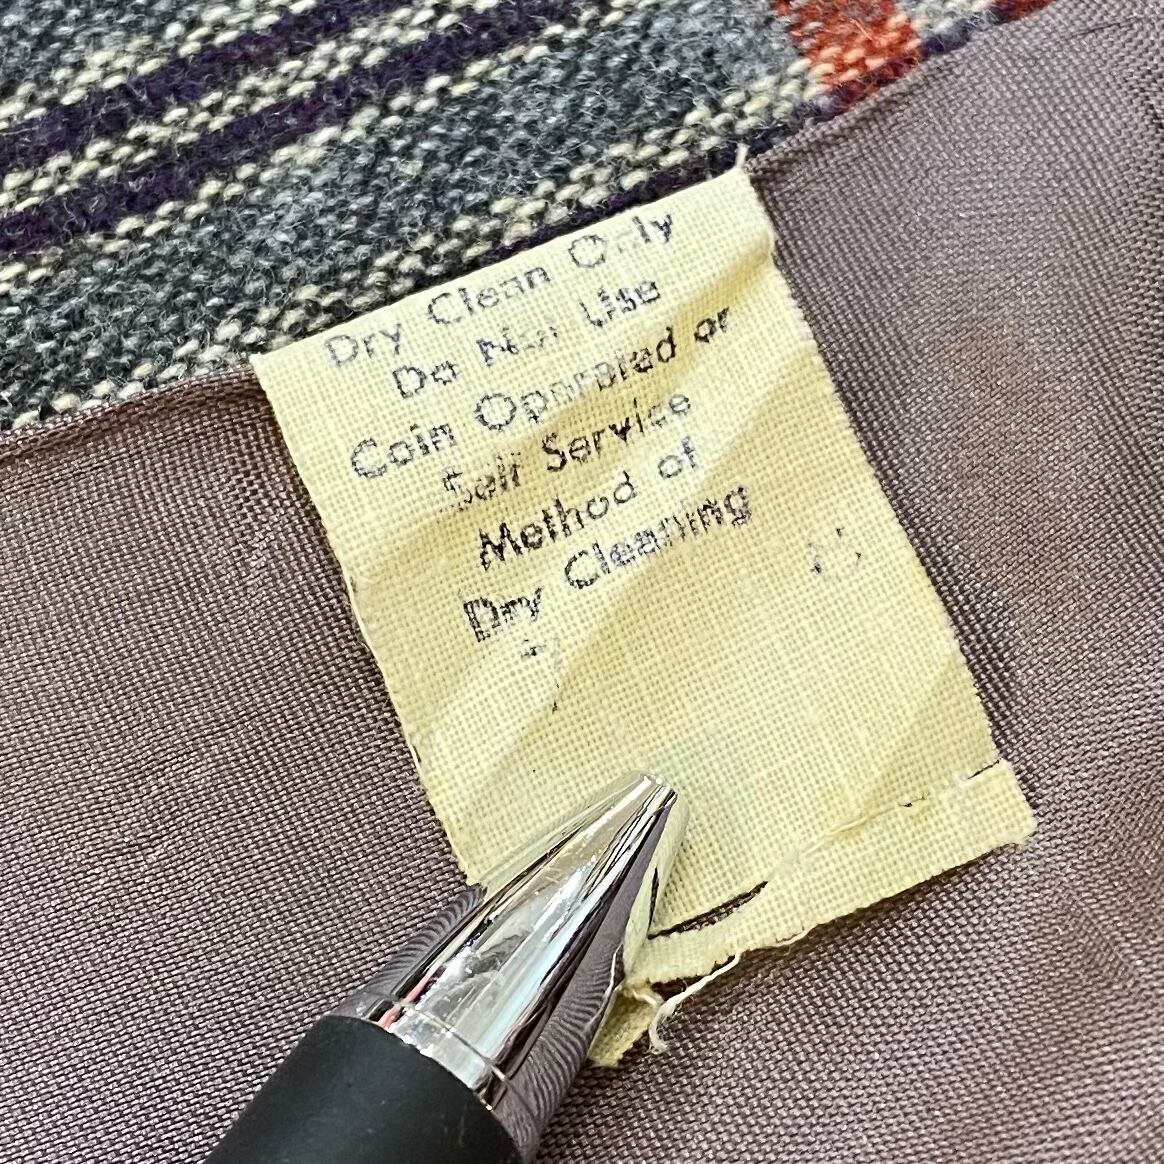 Dry Clean Only
Do Not Use
Coin Operated or
Self Service
Method of
Dry Cleaning